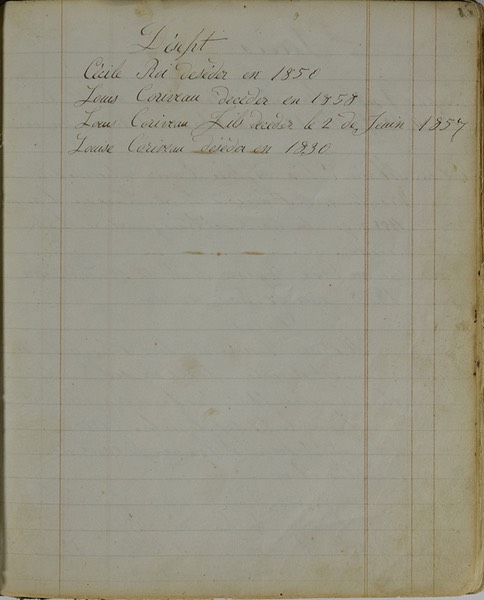 Désept
Cécile Roi deséder en 1850
Louis Coriveau decéder en 1858
Louis Coriveau Fils decéder le 2 de Jenin 1857
Louise Coriveau deséder en 1830